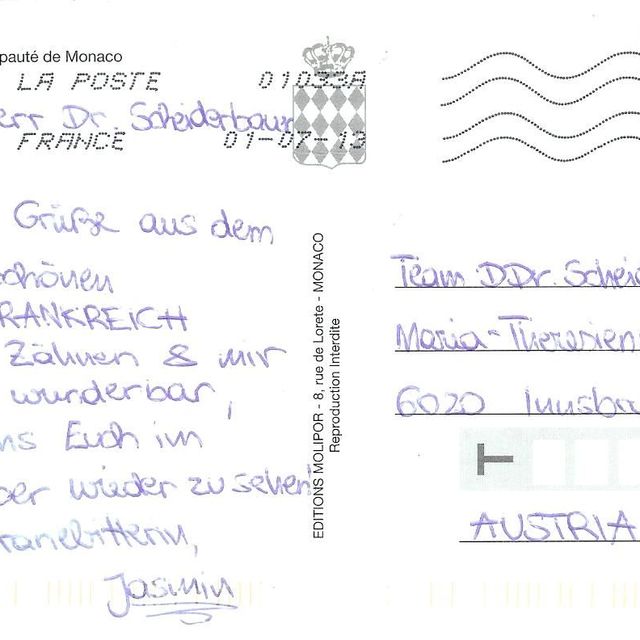 pauté de Monaco
LA POSTE 01033A
err Dr. Scheiderbauer
FRANCE 01-07-13
Grüße aus dem
schönen
FRANKREICH
Zähnen & mir
wunderbar,
ns Euch im
ber wieder zu sehen!
ranebitterin,
Jasmin
EDITIONS MOLIPOR - 8, rue de Lorete - MONACO
Reproduction Interdite
Team DDr. Schei
Maria-Theresien
6020 Innsbru
T
AUSTRIA